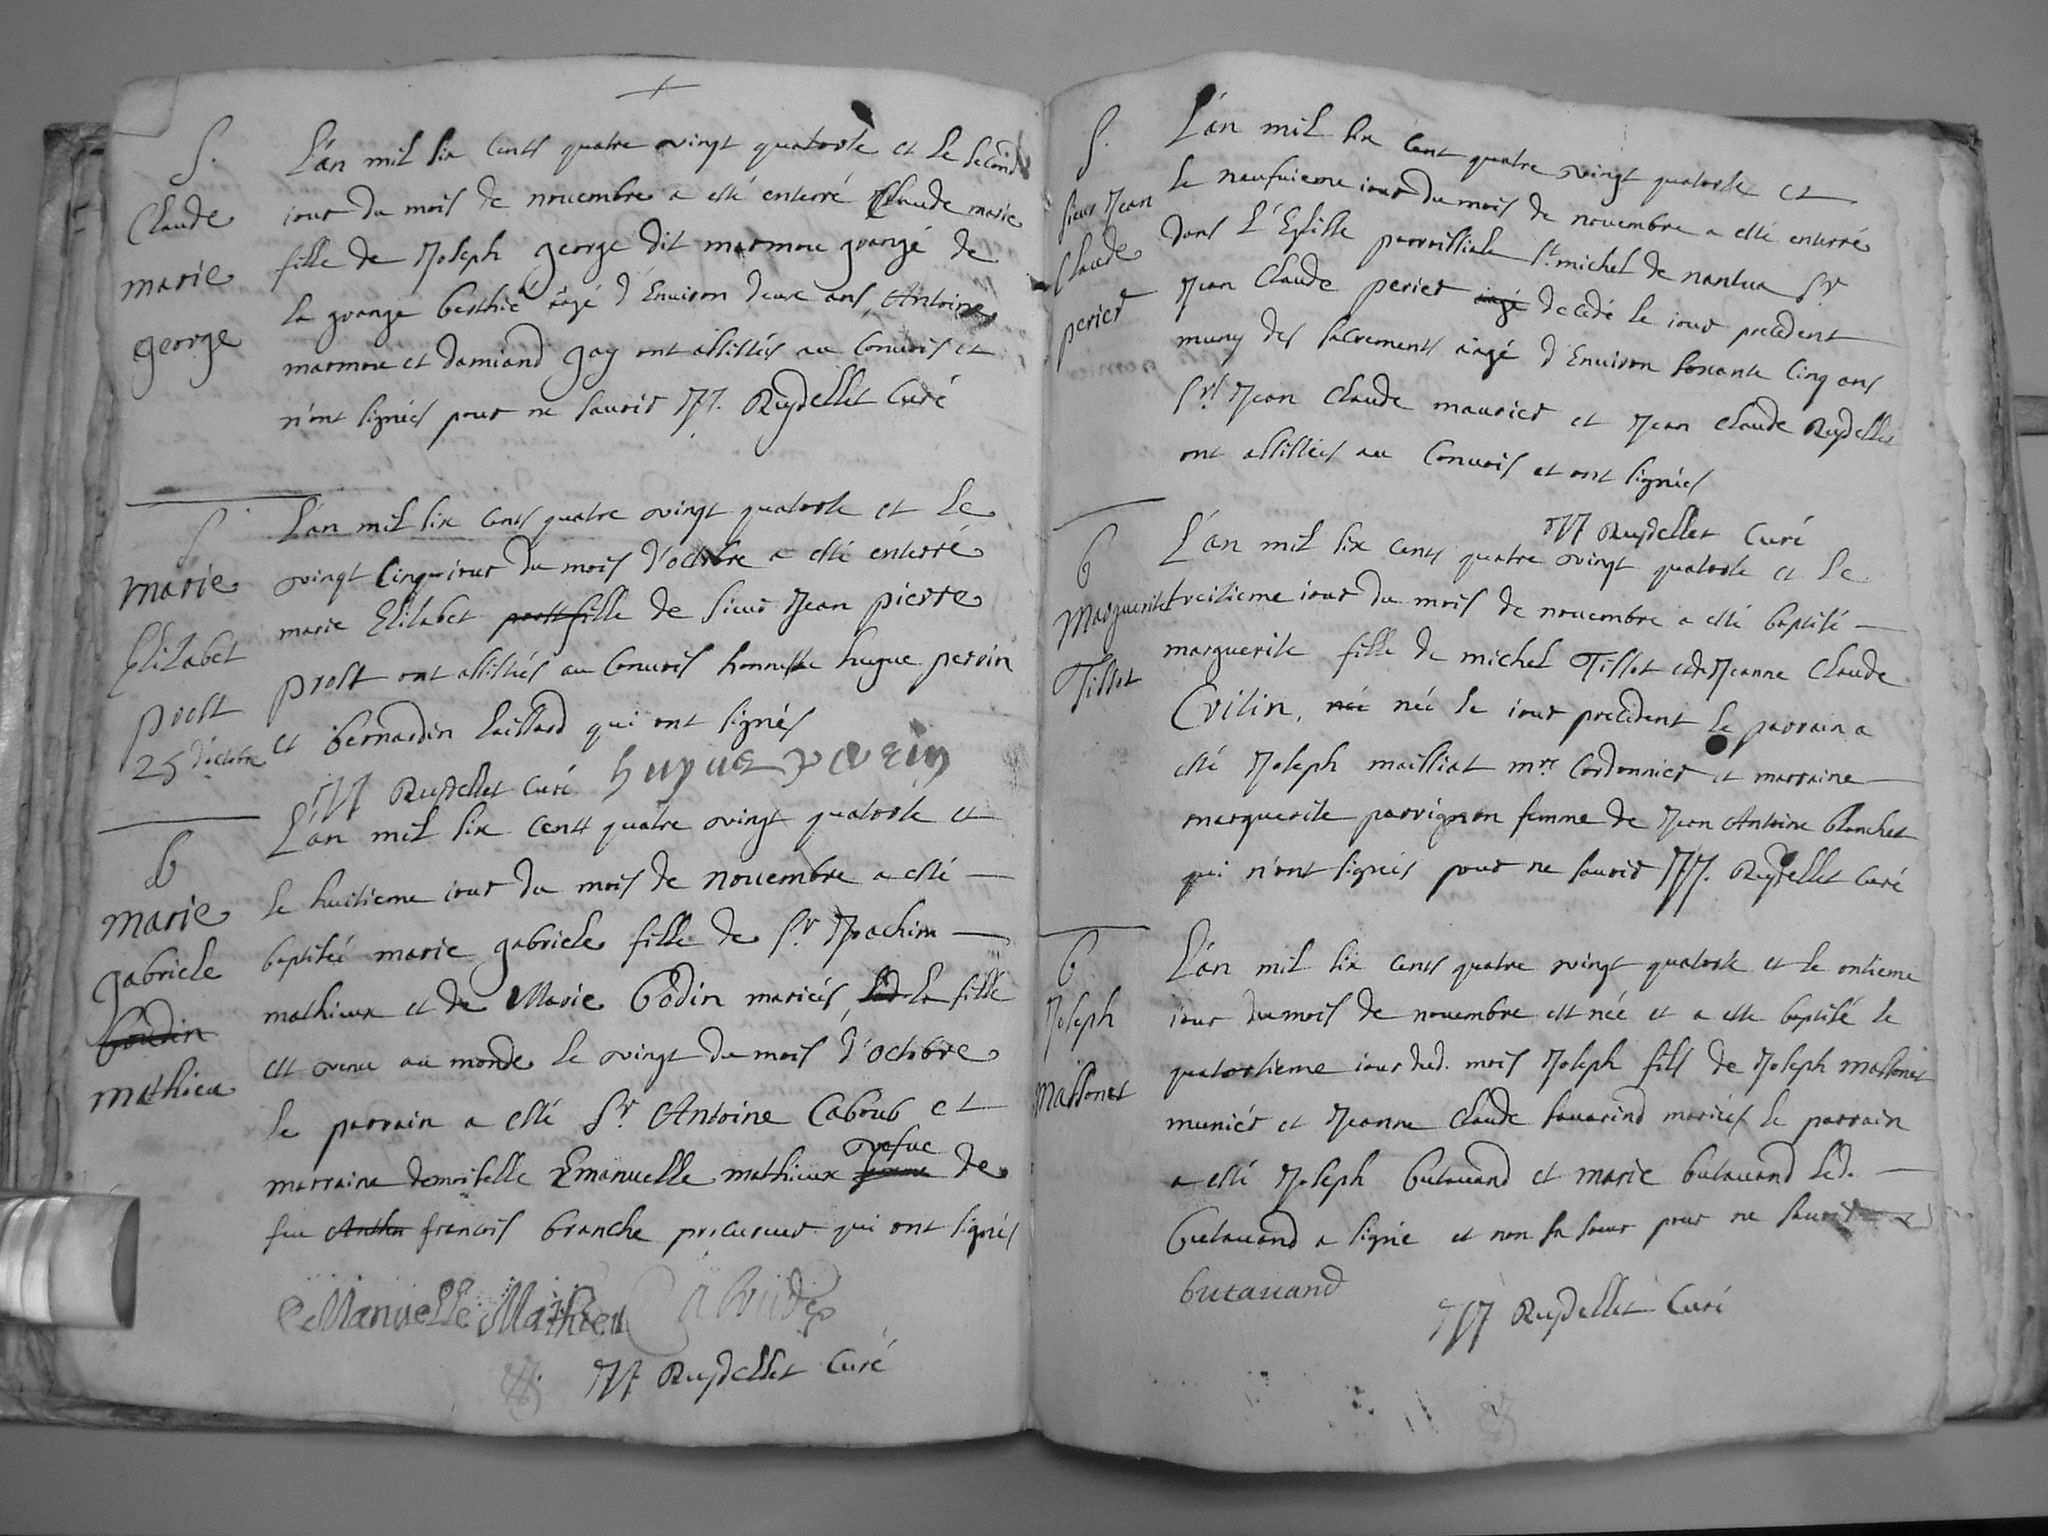 S.
Claude
marie
george
L'an mil six cents quatre vingt quatorse et le second
iour du mois de nouembre a esté enterré Claude marie
fille de Joseph george dit marmou grangé de
la grange berthié aagé d'Enuiron deux ans, Antoine
marmou et damiand gay ont assistés au Conuois et
n'ont signés pour ne sauoir Ruydellet Curé
S
marie
Elizabet
prost
25 d'octobre
L'an mil six cents quatre vingt quatorse et le
vingt cinq iour du mois d'octobre a esté enterré
marie Elisabet prost fille de sieur Jean pierre
prost ont assistés au Conuois honneste hugue perrin
et bernardin qui ont signés
Ruydellet Curé hugue perrin
b
marie
gabriele
boudin
mathieu
L'an mil six cents quatre vingt quatorse et
le huitieme iour du mois de nouembre a esté
baptisée marie gabriele fille de Sr Joachim
mathieux et de Marie bodin mariés, la fille
est venu au monde le vingt du mois d'octobre
le parrain a esté Sr Antoine Caboud et
vefue
marraine demoiselle Emanuelle mathieux femme de
feu francois branche procureur qui ont signés
EMANuelle Mathieu
Ruydellet Curé
S.
sieur Jean
Claude
perier
L'an mil six cent quatre vingt quatorse et
le neufuieme iour du mois de nouembre a esté enterré
dans l'Eglise parroissiale St. michel de nantua Sr
Jean Claude perier aagé decedé le iour precedent
muny des sacrements aagé d'Enuiron soixante cinq ans
Srs Jean Claude maurier et Jean Claude Ruydellet
ont assistés au Conuois et ont signés
Ruydellet Curé
b
Marguerite
Tillot
L'an mil six cents quatre vingt quatorse et le
treisieme iour du mois de nouembre a esté baptisé
marguerite fille de michel Tillot et de Jeanne Claude
Crilin, née née le iour precedent le parrain a
esté Joseph mailliat mre Cordonnier et marraine
marguerite parrignon femme de Jean Antoine blanchet
qui n'ont signés pour ne sauoir Ruydellet Curé
b
Joseph
massonet
L'an mil six cents quatre vingt quatorse et le onsieme
iour du mois de nouembre est née et a este baptisé le
quatorsieme iour dud. mois Joseph fils de Joseph massonet
munier et Jeanne Claude sauarind mariés le parrain
a esté Joseph butauand et marie butauand led.
butauand a signé et non sa soeur pour ne sauoir
butauand
Ruydellet Curé